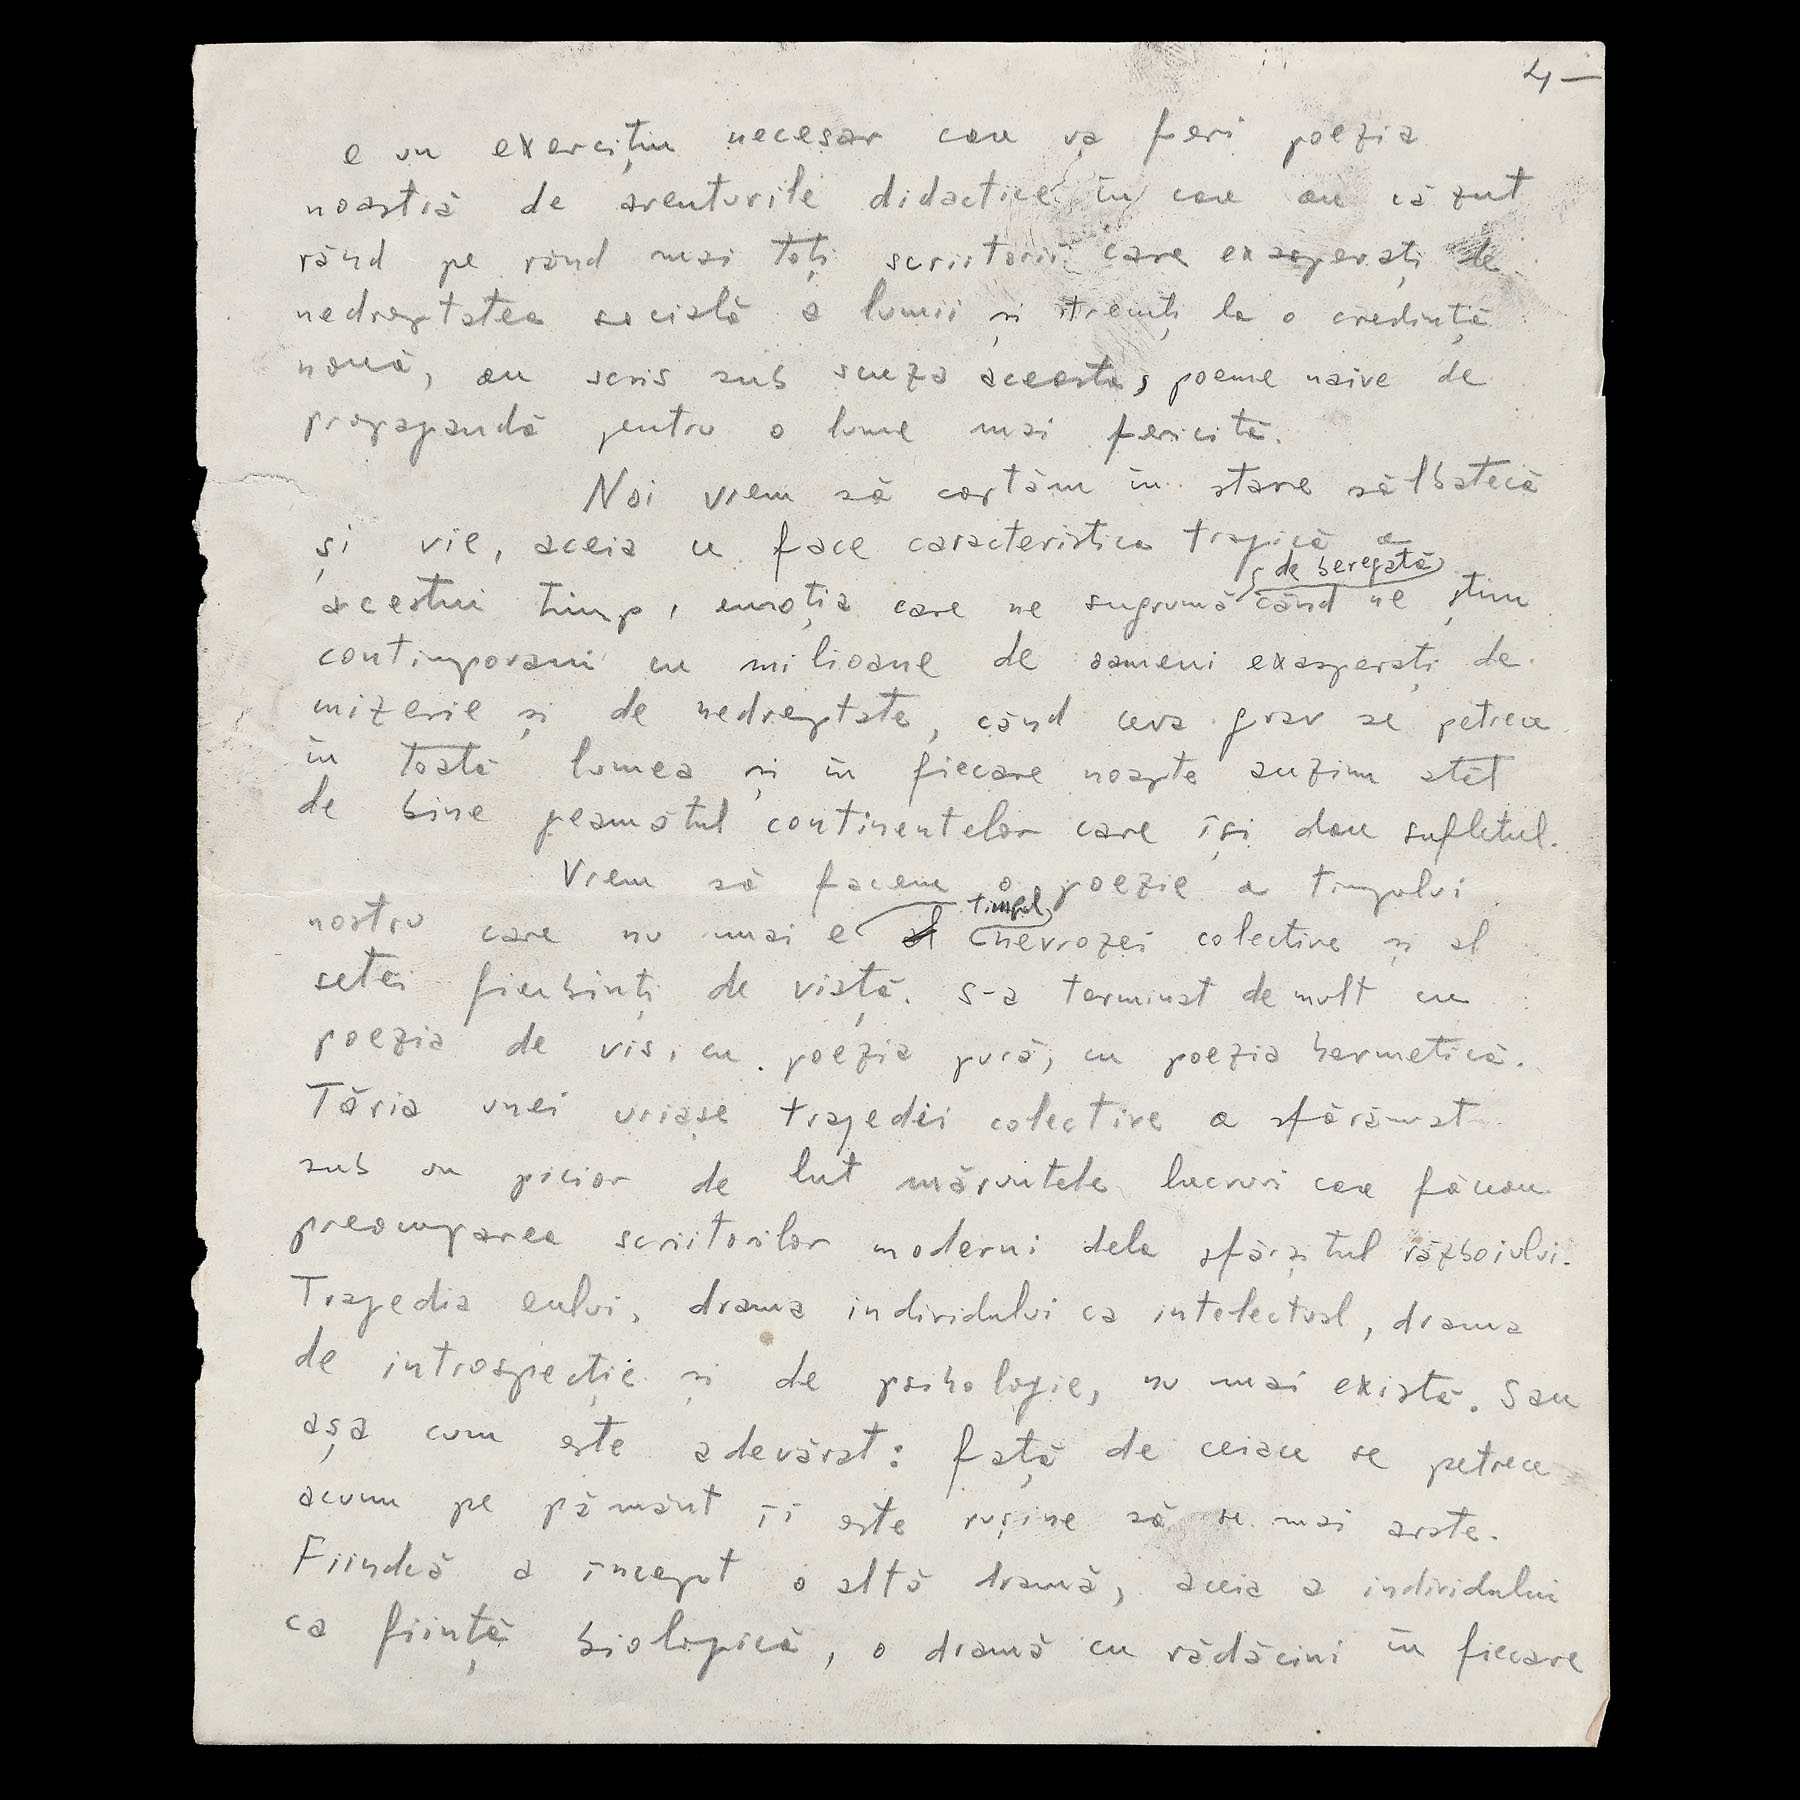 4 —
e un exercițiu necesar care va feri poezia
noastră de aventurile didactice în care au căzut
rând pe rând mai toți scriitorii care exasperați de
nedreptatea socială a lumii și treziți la o credință
nouă, au scris sub scuza aceasta, poeme naive de
propagandă pentru o lume mai fericită.
Noi vrem să captăm în stare sălbatecă
și vie, aceia ce face caracteristica tragică a
de beregată
acestui timp, emoția care ne sugrumă când ne știm
contimporani cu milioane de oameni exasperați de
mizerie și de nedreptate, când ceva grav se petrece
în toată lumea și în fiecare noapte auzim atât
de bine geamătul continentelor care își dau sufletul.
Vrem să facem o poezie a timpului
timpul
nostru care nu mai e al nevrozei colective și al
setei fierbinți de viață. S-a terminat de mult cu
poezia de vis, cu poezia pură, cu poezia hermetică.
Tăria unei uriașe tragedii colective a sfărâmat
sub un picior de lut măruntele lucruri care făceau
preocuparea scriitorilor moderni dela sfârșitul războiului.
Tragedia eului, drama individului ca intelectual, drama
de introspecție și de psihologie, nu mai există. Sau
așa cum este adevărat: față de ceiace se petrece
acum pe pământ îi este rușine să se mai arate.
Fiindcă a început o altă dramă, aceia a individului
ca ființă biologică, o dramă cu rădăcini în fiecare